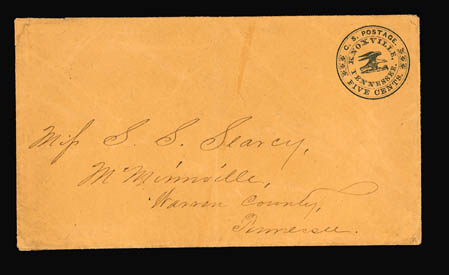 C. S. POSTAGE.
KNOXVILLE,
TENNESSEE.
FIVE CENTS.
Miss S. S. Searcy,
McMinnville,
Warren County,
Tennessee.